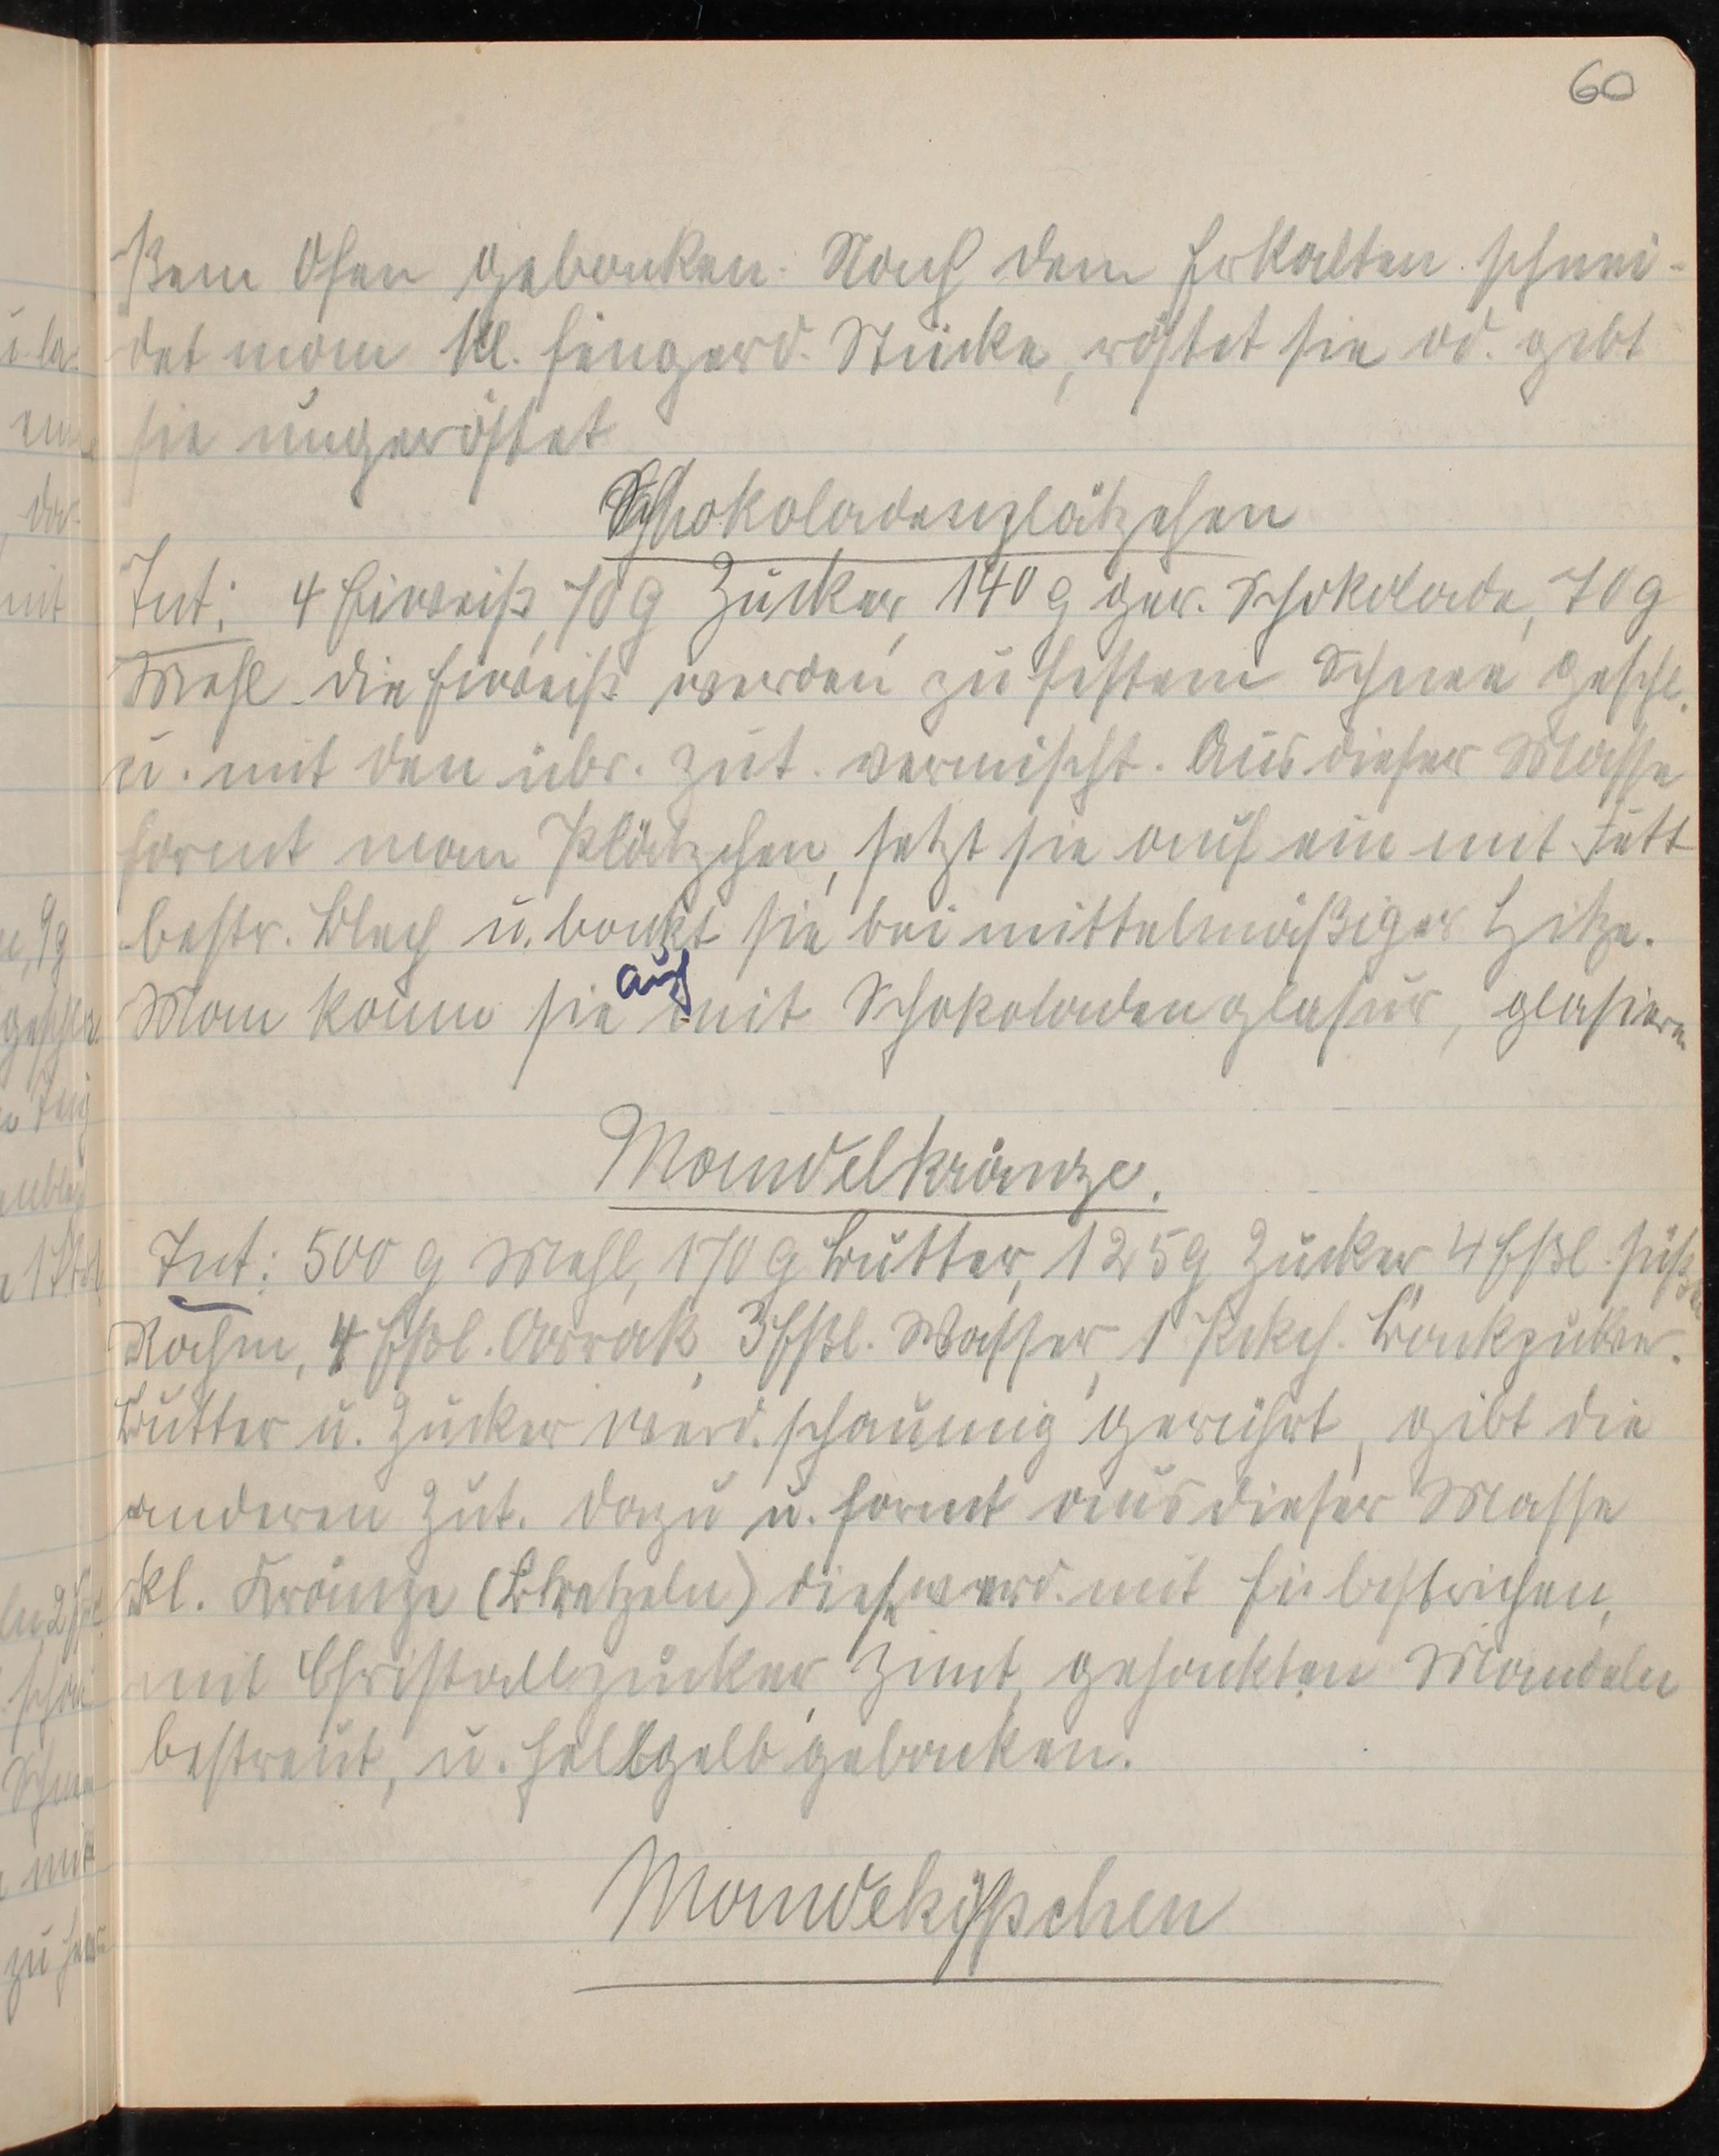 60
ßem Ofen gebacken. Nach dem Erkalten schnei-
det man kl. fingerd. Stücke, röstet sie od. gibt
sie ungeröstet
Schokoladenplätzchen
Zut: 4 Eiweiß, 70 g Zucker, 140 g ger. Schokolade, 70 g
Mehl. die Eiweiß werden zu festem Schnee geschl.
u. mit den übr. Zut. vermischt. Aus dieser Masse
formt man Plätzchen, setzt sie auf ein mit Fett
bestr. Blech u. backt sie bei mittelmäßiger Hitze.
Man kann sie auch mit Schokoladenglasur, glasieren
Mandelkränze.
Zut: 500 g Mehl, 170 g Butter, 125 g Zucker, 4 Eßl. süßen
Rahm, 4 Eßl. Arrak, 3 Eßl. Wasser, 1 Pckch. Backpulver.
Butter u. Zucker werd. schaumig gerührt, gibt die
anderen Zut. dazu u. formt aus dieser Masse
kl. Kränze (Bretzeln) diese werd. mit Ei bestrichen,
mit Christallzucker, Zimt, gehackten Mandeln
bestreut, u. hellgelb gebacken.